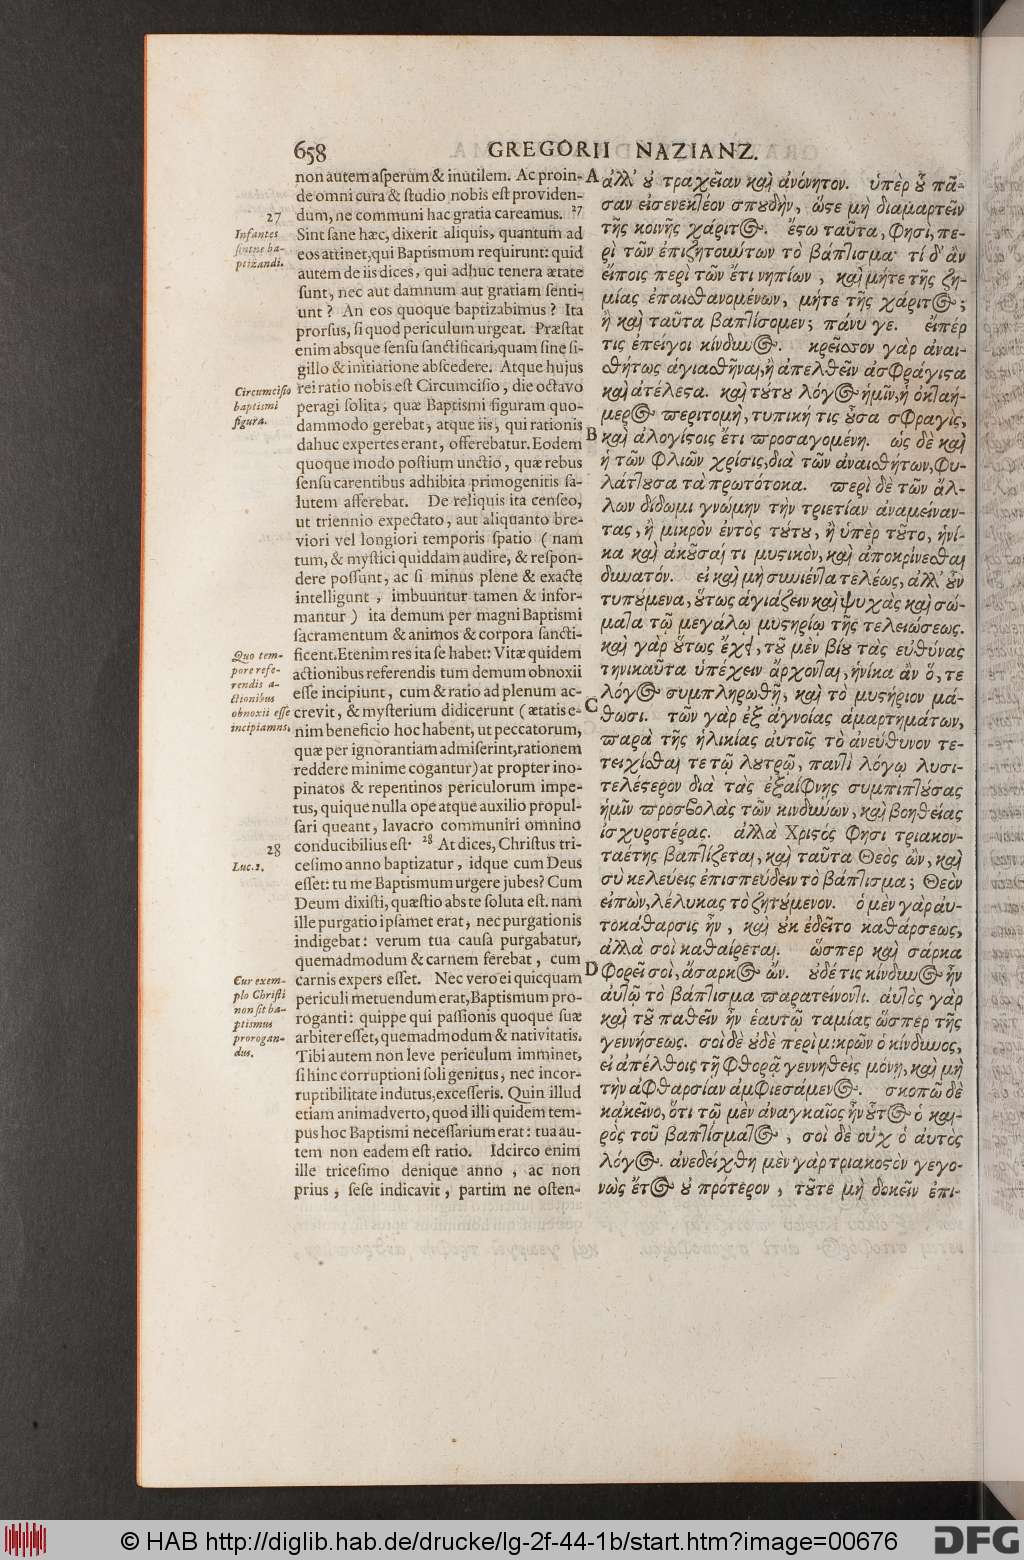 658 GREGORII NAZIANZ.
non autem asperum & inutilem. Ac proin-
de omni cura & studio nobis est providen-
dum, ne communi hac gratia careamus. 27
Sint sane hæc, dixerit aliquis, quantum ad
eos attinet, qui Baptismum requirunt: quid
autem de iis dices, qui adhuc tenera ætate
sunt, nec aut damnum aut gratiam senti-
unt? An eos quoque baptizabimus? Ita
prorsus, si quod periculum urgeat. Præstat
enim absque sensu sanctificari, quam sine si-
gillo & initiatione abscedere. Atque hujus
rei ratio nobis est Circumcisio, die octavo
peragi solita, quæ Baptismi figuram quo-
dammodo gerebat, atque iis, qui rationis
dahuc expertes erant, offerebatur. Eodem
quoque modo postium unctio, quæ rebus
sensu carentibus adhibita primogenitis sa-
lutem afferebat. De reliquis ita censeo,
ut triennio expectato, aut aliquanto bre-
viori vel longiori temporis spatio (nam
tum, & mystici quiddam audire, & respon-
dere possunt, ac si minus plene & exacte
intelligunt, imbuuntur tamen & infor-
mantur) ita demum per magni Baptismi
sacramentum & animos & corpora sancti-
ficent. Etenim res ita se habet: Vitæ quidem
actionibus referendis tum demum obnoxii
esse incipiunt, cum & ratio ad plenum ac-
crevit, & mysterium didicerunt (ætatis e-
nim beneficio hoc habent, ut peccatorum,
quæ per ignorantiam admiserint, rationem
reddere minime cogantur) at propter ino-
pinatos & repentinos periculorum impe-
tus, quique nulla ope atque auxilio propul-
sari queant, lavacro communiri omnino
conducibilius est. 28 At dices, Christus tri-
cesimo anno baptizatur, idque cum Deus
esset: tu me Baptismum urgere jubes? Cum
Deum dixisti, quæstio abs te soluta est. nam
ille purgatio ipsamet erat, nec purgationis
indigebat: verum tua causa purgabatur,
quemadmodum & carnem ferebat, cum
carnis expers esset. Nec vero ei quicquam
periculi metuendum erat, Baptismum pro-
roganti: quippe qui passionis quoque suæ
arbiter esset, quemadmodum & nativitatis.
Tibi autem non leve periculum imminet,
si hinc corruptioni soli genitus, nec incor-
ruptibilitate indutus, excesseris. Quin illud
etiam animadverto, quod illi quidem tem-
pus hoc Baptismi necessarium erat: tua au-
tem non eadem est ratio. Idcirco enim
ille tricesimo denique anno, ac non
prius, sese indicavit, partim ne osten-
27
Infantes
sintne ba-
ptizandi.
Circumcisio
baptismi
figura.
Quo tem-
pore refe-
rendis a-
ctionibus
obnoxii esse
incipiamus.
28
Luc. 2.
Cur exem-
plo Christi
non sit ba-
ptismus
prorogan-
dus.
A
B
C
D
ἀλλ' οὐ τραχεῖαν καὶ ἀνόνητον. ὑπὲρ οὗ πᾶ-
σαν εἰσενεκτέον σπουδὴν, ὥστε μὴ διαμαρτεῖν
τῆς κοινῆς χάριτος. ἔστω ταῦτα, φησὶ, πε-
ρὶ τῶν ἐπιζητούντων τὸ βάπτισμα· τί δ' ἂν
εἴποις περὶ τῶν ἔτι νηπίων, καὶ μήτε τῆς ζη-
μίας ἐπαισθανομένων, μήτε τῆς χάριτος;
ἢ καὶ ταῦτα βαπτίσομεν; πάνυ γε. εἴπερ
τις ἐπείγοι κίνδυνος. κρεῖσσον γὰρ ἀναι-
σθήτως ἁγιασθῆναι, ἢ ἀπελθεῖν ἀσφράγιστα
καὶ ἀτέλεστα. καὶ τούτου λόγος ἡμῖν, ἡ ὀκταή-
μερος περιτομὴ, τυπική τις οὖσα σφραγὶς,
καὶ ἀλογίστοις ἔτι προσαγομένη. ὡς δὲ καὶ
ἡ τῶν φλιῶν χρίσις, διὰ τῶν ἀναισθήτων, φυ-
λάττουσα τὰ πρωτότοκα. περὶ δὲ τῶν ἄλ-
λων δίδωμι γνώμην τὴν τριετίαν ἀναμείναν-
τας, ἢ μικρὸν ἐντὸς τούτου, ἢ ὑπὲρ τοῦτο, ἡνί-
κα καὶ ἀκοῦσαί τι μυστικὸν, καὶ ἀποκρίνεσθαι
δυνατόν. εἰ καὶ μὴ συνιέντα τελέως, ἀλλ' οὖν
τυπούμενα, οὕτως ἁγιάζειν καὶ ψυχὰς καὶ σώ-
ματα τῷ μεγάλῳ μυστηρίῳ τῆς τελειώσεως.
καὶ γὰρ οὕτως ἔχει, τοῦ μὲν βίου τὰς εὐθύνας
τηνικαῦτα ὑπέχειν ἄρχονται, ἡνίκα ἂν ὅ, τε
λόγος συμπληρωθῇ, καὶ τὸ μυστήριον μά-
θωσι. τῶν γὰρ ἐξ ἀγνοίας ἁμαρτημάτων,
παρὰ τῆς ἡλικίας αὐτοῖς τὸ ἀνεύθυνον τε-
τειχίσθαι τε τῷ λουτρῷ, παντὶ λόγῳ λυσι-
τελέστερον διὰ τὰς ἐξαίφνης συμπιπτούσας
ἡμῖν προσβολὰς τῶν κινδύνων, καὶ βοηθείας
ἰσχυροτέρας. ἀλλὰ Χριστὸς φησι τριακον-
ταέτης βαπτίζεται, καὶ ταῦτα Θεὸς ὢν, καὶ
σὺ κελεύεις ἐπισπεύδειν τὸ βάπτισμα; Θεὸν
εἰπὼν, λέλυκας τὸ ζητούμενον. ὁ μὲν γὰρ αὐ-
τοκάθαρσις ἦν, καὶ οὐκ ἐδεῖτο καθάρσεως,
ἀλλὰ σοὶ καθαίρεται. ὥσπερ καὶ σάρκα
φορεῖ σοὶ, ἄσαρκος ὤν. οὐδέ τις κίνδυνος ἦν
αὐτῷ τὸ βάπτισμα παρατείνοντι. αὐτὸς γὰρ
καὶ τοῦ παθεῖν ἦν ἑαυτῷ ταμίας ὥσπερ τῆς
γεννήσεως. σοὶ δὲ οὐδὲ περὶ μικρῶν ὁ κίνδυνος,
εἰ ἀπέλθοις τῇ φθορᾷ γεννηθεὶς μόνῃ, καὶ μὴ
τὴν ἀφθαρσίαν ἀμφιεσάμενος. σκοπῶ δὲ
κἀκεῖνο, ὅτι τῷ μὲν ἀναγκαῖος ἦν οὗτος ὁ και-
ρὸς τοῦ βαπτίσματος, σοὶ δὲ οὐχ ὁ αὐτὸς
λόγος. ἀνεδείχθη μὲν γὰρ τριακοστὸν γεγο-
νὼς ἔτος οὐ πρότερον, τοῦτε μὴ δοκεῖν ἐπι-
© HAB http://diglib.hab.de/drucke/lg-2f-44-1b/start.htm?image=00676
DFG